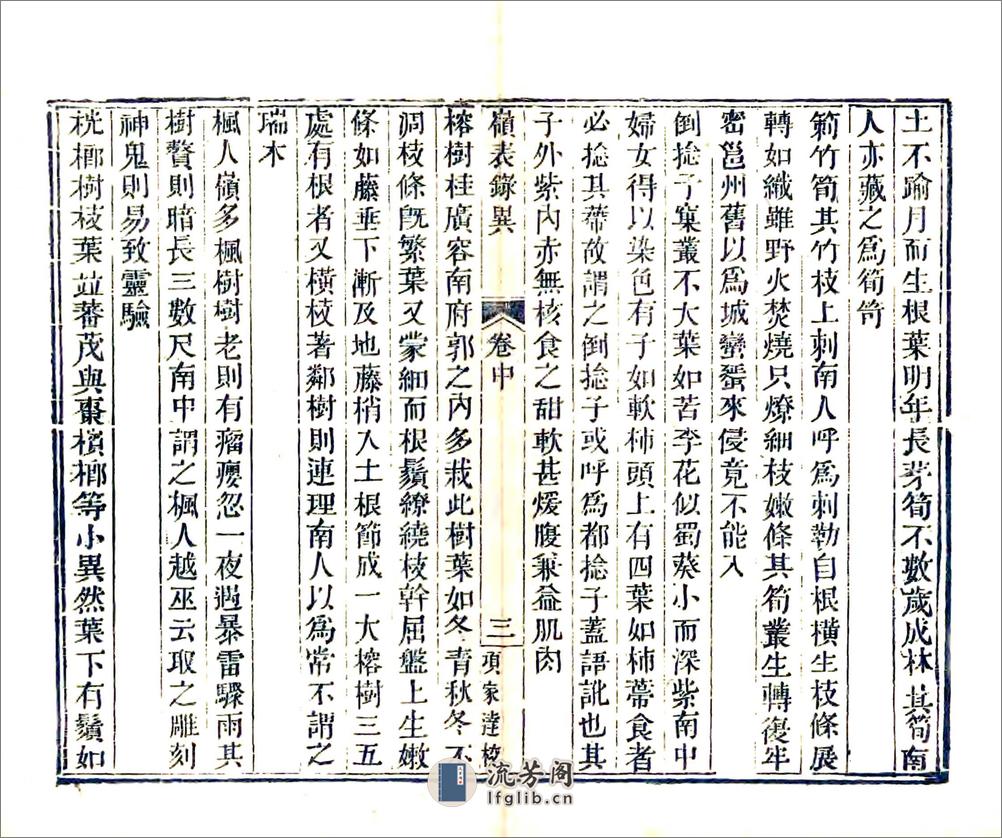 土不踰月而生根葉明年長茅筍不數歲成林其筍南
人亦藏之爲筍笴
箣竹筍其竹枝上刺南人呼爲刺勒自根橫生枝條展
轉如織雖野火焚燒只燎細枝嫩條其筍叢生轉復牢
密邕州舊以爲城蠻蜑來侵竟不能入
倒捻子窠叢不大葉如苦李花似蜀葵小而深紫南中
婦女得以染色有子如軟柿頭上有四葉如柿蔕食者
必捻其蔕故謂之倒捻子或呼爲都捻子蓋語訛也其
子外紫內赤無核食之甜軟甚煖腹兼益肌肉
嶺表錄異 卷中 三 項家達校
榕樹桂廣容南府郭之內多栽此樹葉如冬青秋冬不
凋枝條旣繁葉又蒙細而根鬚繚繞枝幹屈盤上生嫩
條如藤垂下漸及地藤梢入土根節成一大榕樹三五
處有根者又橫枝著鄰樹則連理南人以爲常不謂之
瑞木
楓人嶺多楓樹樹老則有瘤癭忽一夜遇暴雷驟雨其
樹贅則暗長三數尺南中謂之楓人越巫云取之雕刻
神鬼則易致靈驗
桄榔樹枝葉竝蕃茂與棗檳榔等小異然葉下有鬚如
流芳阁
lfglib.cn